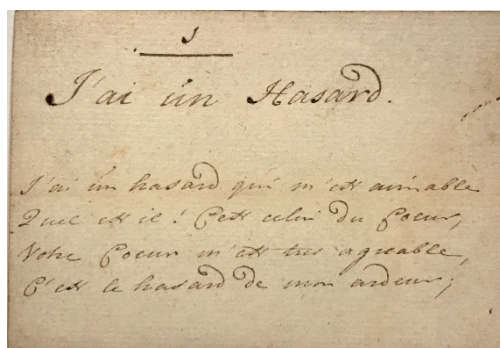 J
J'ai un Hasard.
J'ai un hasard qui m'est aimable
Quel est il! C'est celui du Coeur,
Votre Coeur m'est tres agreable,
C'est le hasard de mon ardeur;